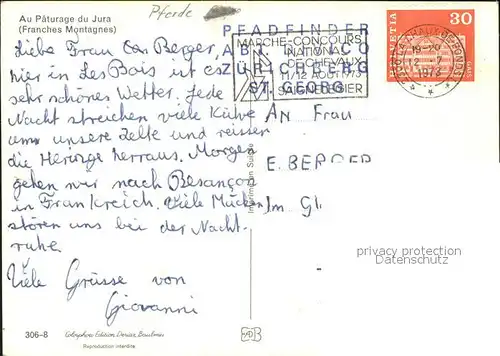 Au Pâturage du Jura
(Franches Montagnes)
Pferde
Liebe Frau Berger,
hier in Les Bois ist es
sehr schönes Wetter. Jede
Nacht streichen viele Kühe
um unsere Zelte und reissen
die Heringe herraus. Morgen
gehen wir nach Besançon
in Frankreich. Viele Mücken
stören uns bei der Nacht-
ruhe.
Viele Grüsse von
Giovanni
PFADFINDER
ABT. WINCO
ZÜRICHBERG
ST. GEORG
MARCHE-CONCOURS
NATIONAL
DE CHEVAUX
11/12 AOUT 1973
SAIGNELEGIER
HELVETIA 30
GAIS
2300 LA CHAUX-DE-FONDS 1
19-20
12. 7
1973
AN Frau
E. BERGER
Im
Imprimé en Suisse
privacy protection
watermark
306-8 Colorphoto Edition Deriaz, Baulmes
Reproduction interdite